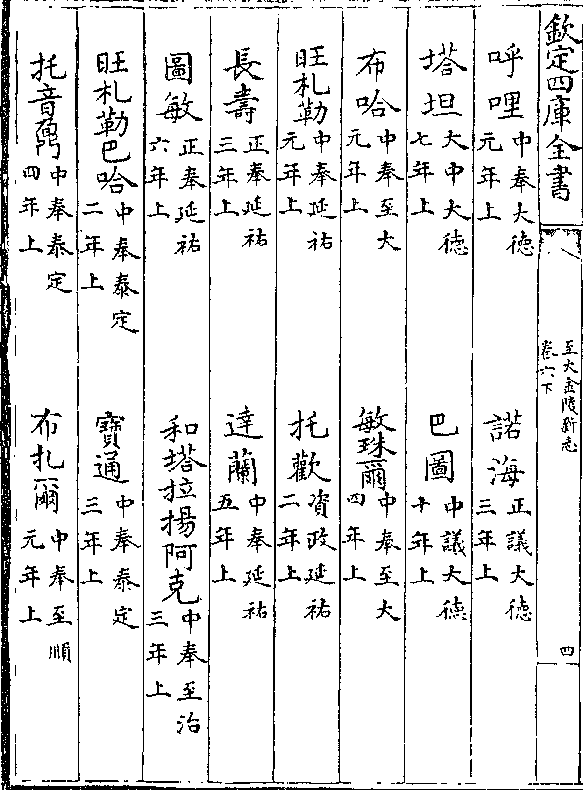 欽定四庫全書
至大金陵新志
卷六下
四
呼哩中奉大德元年上
諾海正議大德三年上
塔坦大中大德七年上
巴圖中議大德十年上
布哈中奉至大元年上
敏珠爾中奉至大四年上
旺札勒中奉延祐元年上
托歡資政延祐二年上
長壽正奉延祐三年上
達蘭中奉延祐五年上
圖敏正奉延祐六年上
和塔拉揚阿克中奉至治三年上
旺札勒巴哈中奉泰定二年上
寶通中奉泰定三年上
托音鼐中奉泰定四年上
布扎爾中奉至順元年上